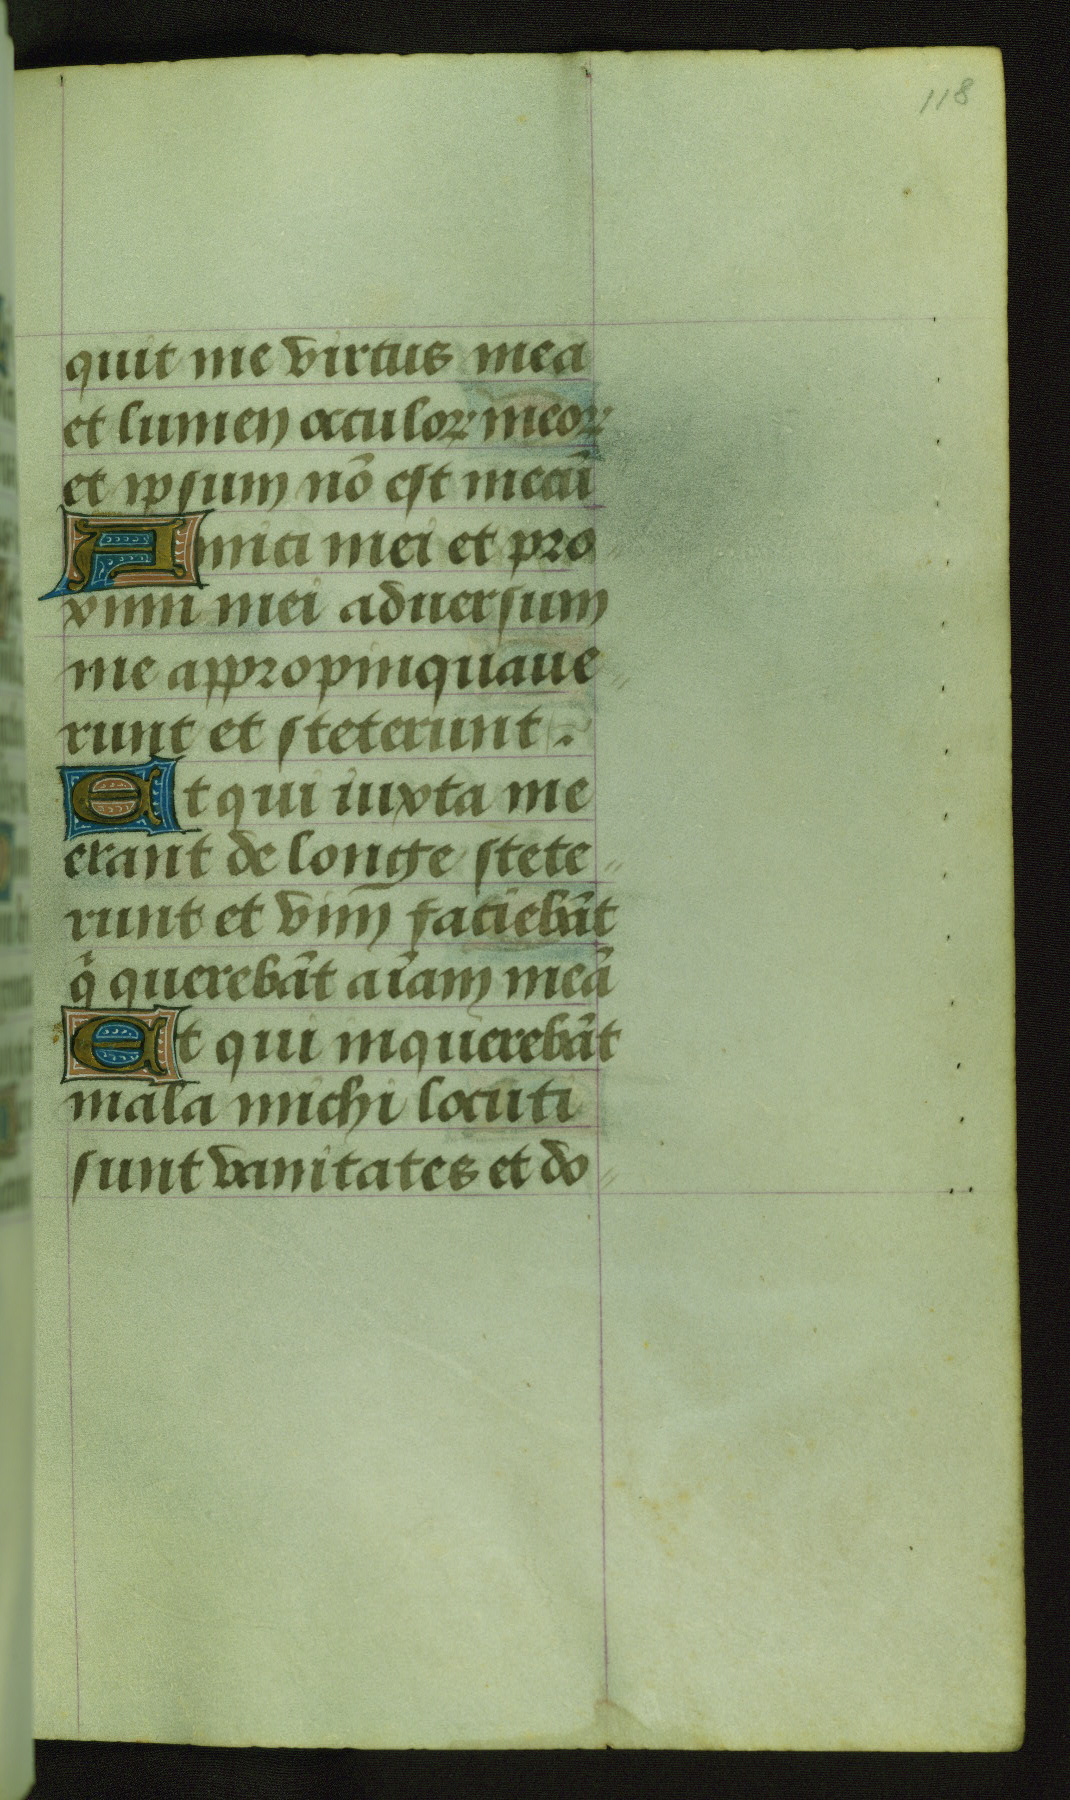 118
quit me virtus mea
et lumen oculoꝝ meoꝝ
et ipsum nō est mecū
Amici mei et pro
ximi mei aduersum
me appropinquaue
runt et steterunt.
Et qui iuxta me
erant de longe stete
runt et vim faciebāt
q̇ querebāt aīam meā
Et qui inquerebāt
mala michi locuti
sunt vanitates et do